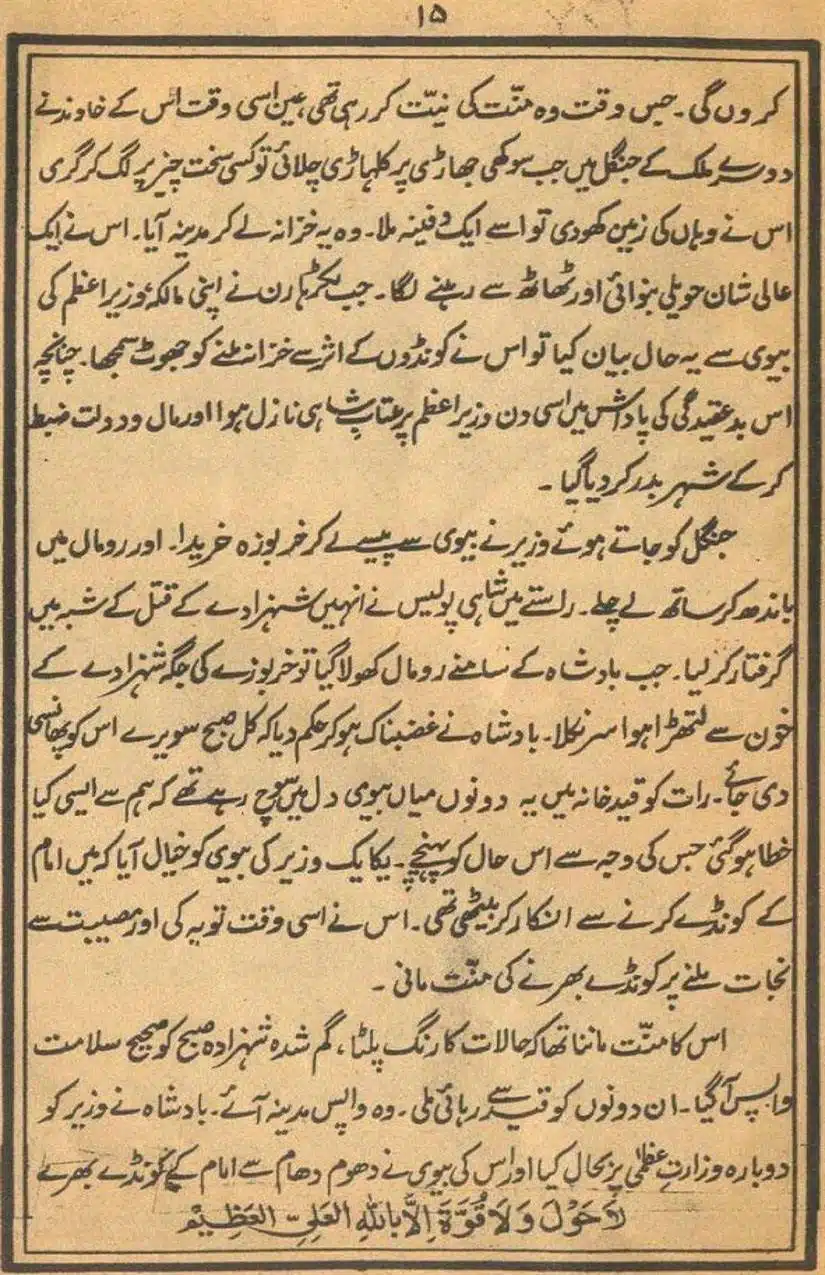 ۱۵
کروں گی۔ جس وقت وہ منّت کی نیّت کر رہی تھی، عین اسی وقت اس کے خاوند نے
دوسرے ملک کے جنگل میں جب سوکھی جھاڑی پر کلہاڑی چلائی تو کسی سخت چیز پر لگ کر گری
اس نے وہاں کی زمین کھودی تو اسے ایک دفینہ ملا۔ وہ یہ خزانہ لے کر مدینہ آیا۔ اس نے ایک
عالی شان حویلی بنوائی اور ٹھاٹھ سے رہنے لگا۔ جب لکڑہارن نے اپنی مالکہ، وزیر اعظم کی
بیوی سے یہ حال بیان کیا تو اس نے کونڈوں کے اثر سے خزانہ ملنے کو جھوٹ سمجھا۔ چنانچہ
اس بدعقیدگی کی پاداش میں اسی دن وزیر اعظم پر عتابِ شاہی نازل ہوا اور مال و دولت ضبط
کر کے شہر بدر کر دیا گیا۔
جنگل کو جاتے ہوئے وزیر نے بیوی سے پیسے لے کر خربوزہ خریدا۔ اور رومال میں
باندھ کر ساتھ لے چلے۔ راستے میں شاہی پولیس نے انہیں شہزادے کے قتل کے شبہ میں
گرفتار کر لیا۔ جب بادشاہ کے سامنے رومال کھولا گیا تو خربوزے کی جگہ شہزادے کے
خون سے لتھڑا ہوا سر نکلا۔ بادشاہ نے غضبناک ہو کر حکم دیا کہ کل صبح سویرے اس کو پھانسی
دی جائے۔ رات کو قید خانہ میں یہ دونوں میاں بیوی دل میں سوچ رہے تھے کہ ہم سے ایسی کیا
خطا ہو گئی جس کی وجہ سے اس حال کو پہنچے۔ یکایک وزیر کی بیوی کو خیال آیا کہ میں امام
کے کونڈے کرنے سے انکار کر بیٹھی تھی۔ اس نے اسی وقت توبہ کی اور مصیبت سے
نجات ملنے پر کونڈے بھرنے کی منّت مانی۔
اس کا منّت ماننا تھا کہ حالات کا رنگ پلٹا، گم شدہ شہزادہ صبح کو صحیح سلامت
واپس آ گیا۔ ان دونوں کو قید سے رہائی ملی۔ وہ واپس مدینہ آئے۔ بادشاہ نے وزیر کو
دوبارہ وزارتِ عظمٰی پر بحال کیا اور اس کی بیوی نے دھوم دھام سے امام کے کونڈے بھرے
لَا حَوْلَ وَلَا قُوَّةَ اِلَّا بِاللّٰهِ الْعَلِیِّ الْعَظِیْمِ